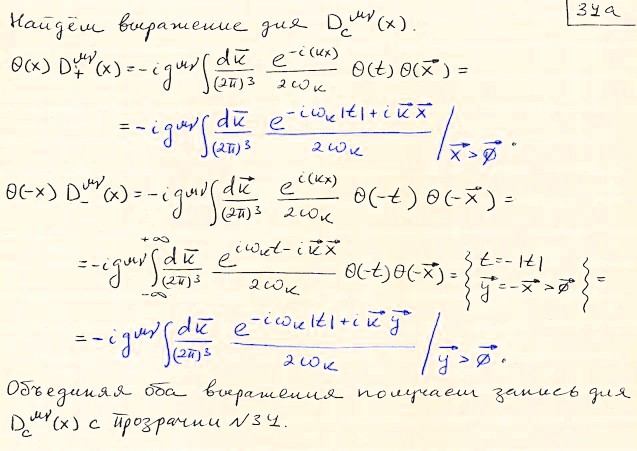 34а
Найдём выражение для D_c^{μν}(x).
θ(x) D_+^{μν}(x) = -i g^{μν} ∫ \frac{d\vec{k}}{(2π)^3} \frac{e^{-i(kx)}}{2ω_k} θ(t) θ(\vec{x}) =
= -i g^{μν} ∫ \frac{d\vec{k}}{(2π)^3} \frac{e^{-iω_k|t| + i\vec{k}\vec{x}}}{2ω_k} /_{\vec{x} > \vec{∅}} .
θ(-x) D_-^{μν}(x) = -i g^{μν} ∫ \frac{d\vec{k}}{(2π)^3} \frac{e^{i(kx)}}{2ω_k} θ(-t) θ(-\vec{x}) =
= -i g^{μν} ∫_{-∞}^{+∞} \frac{d\vec{k}}{(2π)^3} \frac{e^{iω_k t - i\vec{k}\vec{x}}}{2ω_k} θ(-t) θ(-\vec{x}) = { t = -|t| \vec{y} = -\vec{x} > \vec{∅} } =
= -i g^{μν} ∫ \frac{d\vec{k}}{(2π)^3} \frac{e^{-iω_k|t| + i\vec{k}\vec{y}}}{2ω_k} /_{\vec{y} > \vec{∅}} .
Объединяя оба выражения получаем запись для
D_c^{μν}(x) с прозрачки №34.